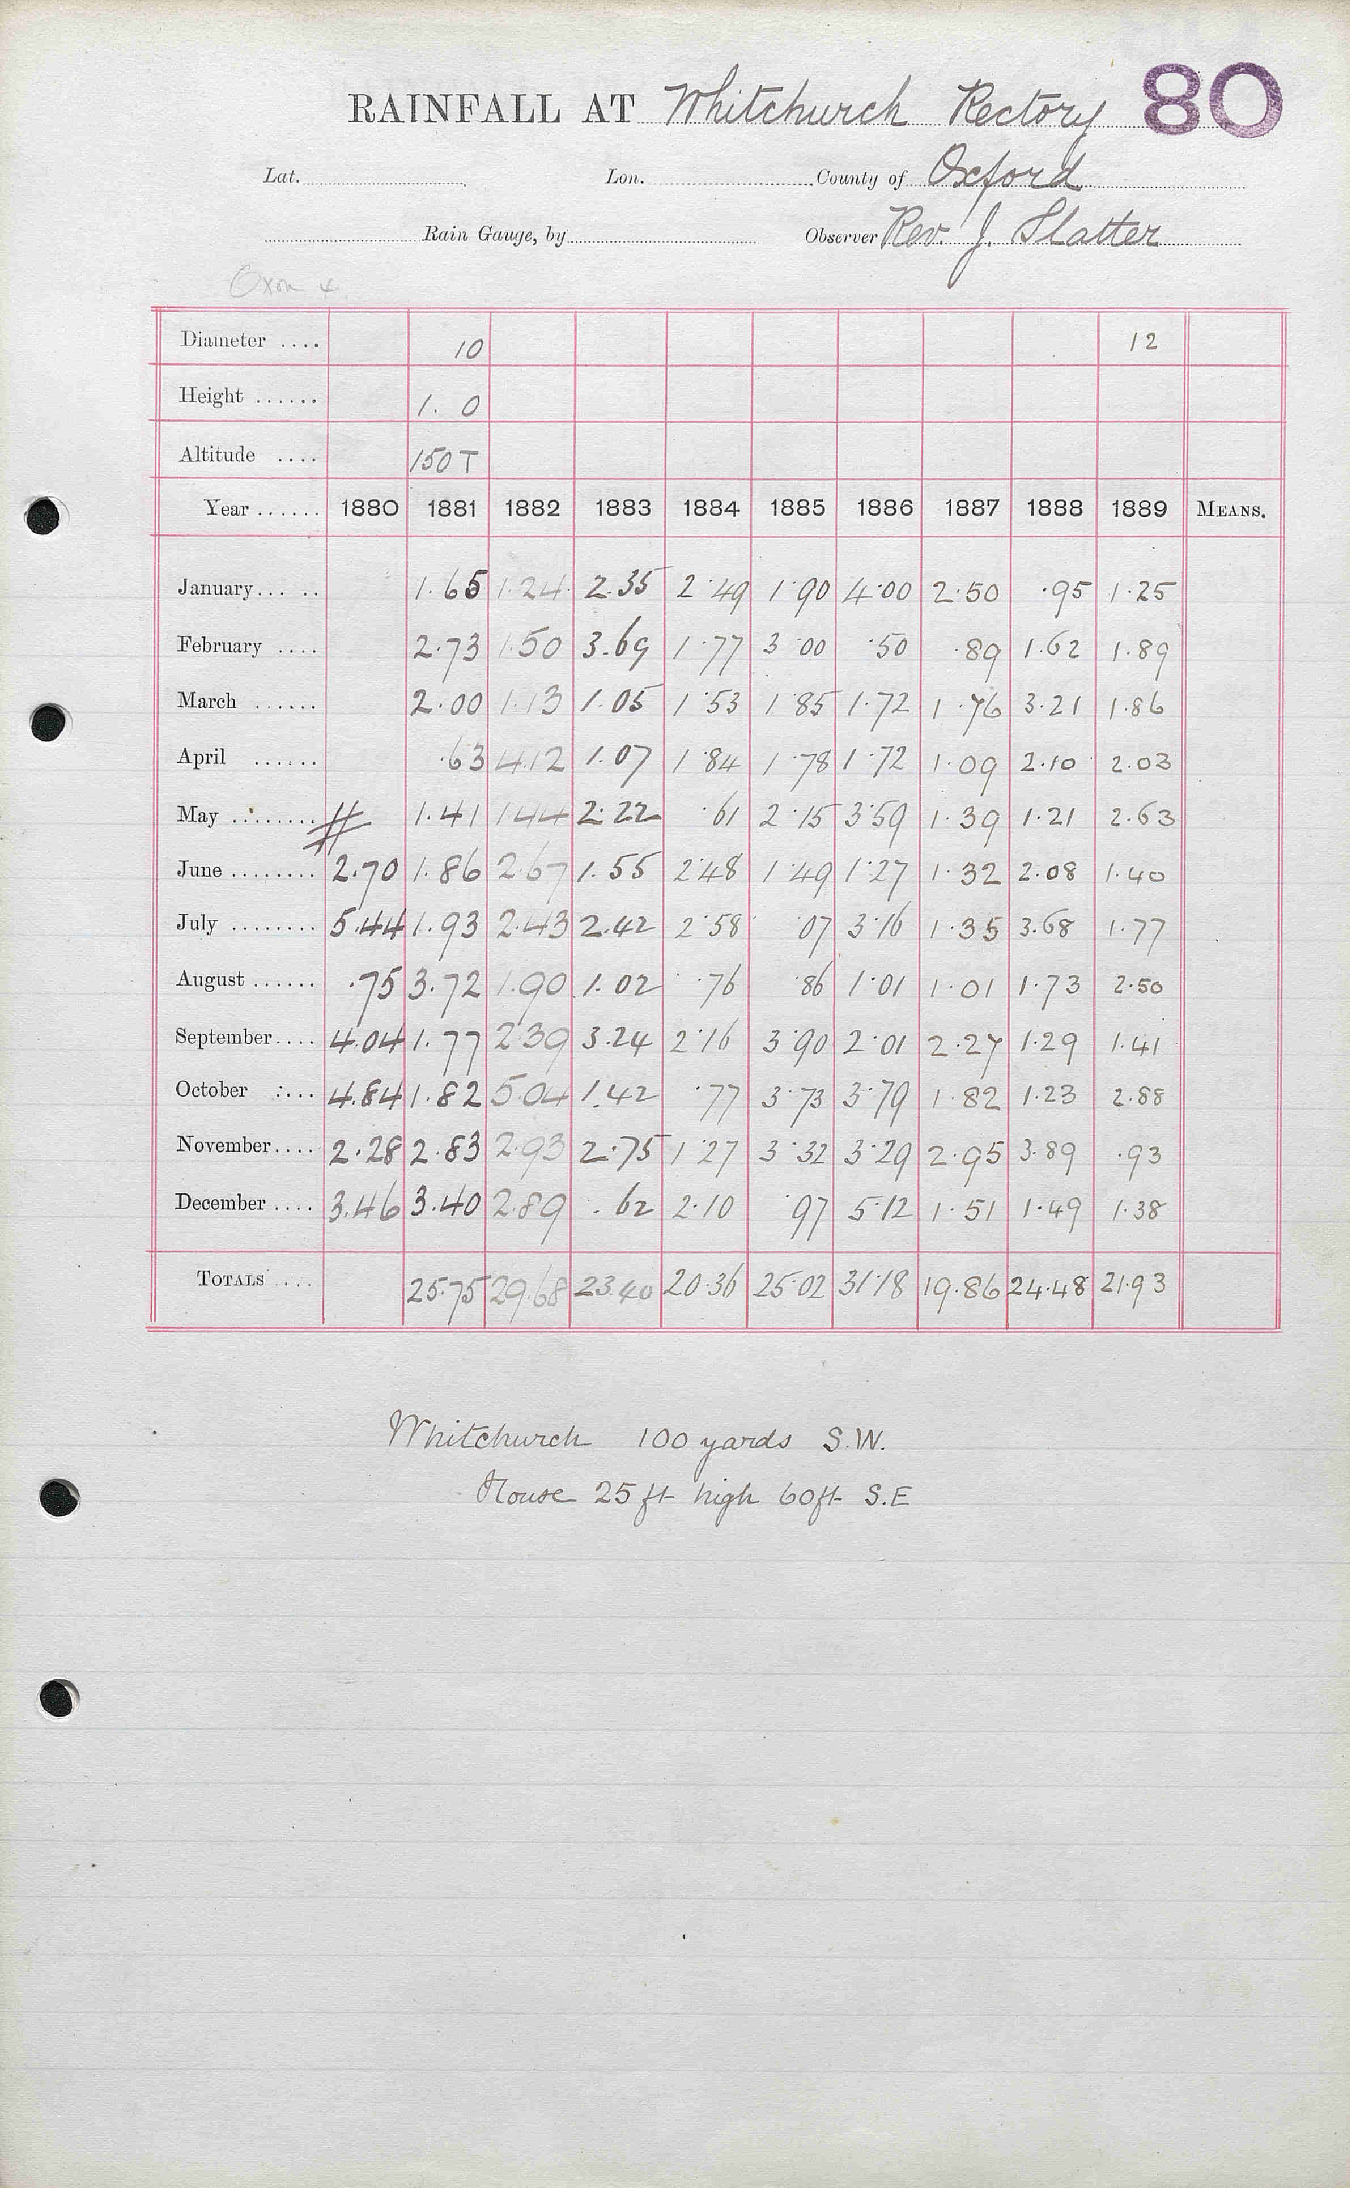 RAINFALL AT Whitchurch Rectory 80
Lat. Lon. County of Oxford
Rain Gauge, by Observer Rev. J. Slatter
Oxon 4
Diameter .... 10 12
Height ...... 1. 0
Altitude .... 150 T
Year ...... 1880 1881 1882 1883 1884 1885 1886 1887 1888 1889 MEANS.
January... .. 1.65 1.24 2.35 2.49 1.90 4.00 2.50 .95 1.25
February .... 2.73 1.50 3.69 1.77 3.00 .50 .89 1.62 1.89
March ...... 2.00 1.13 1.05 1.53 1.85 1.72 1.76 3.21 1.86
April ...... .63 4.12 1.07 1.84 1.78 1.72 1.09 2.10 2.03
May ........ # 1.41 1.44 2.22 .61 2.15 3.59 1.39 1.21 2.63
June ........ 2.70 1.86 2.67 1.55 2.48 1.49 1.27 1.32 2.08 1.40
July ........ 5.44 1.93 2.43 2.42 2.58 .07 3.16 1.35 3.68 1.77
August ...... .75 3.72 1.90 1.02 .76 .86 1.01 1.01 1.73 2.50
September.... 4.04 1.77 2.39 3.24 2.16 3.90 2.01 2.27 1.29 1.41
October .... 4.84 1.82 5.04 1.42 .77 3.73 3.79 1.82 1.23 2.88
November.... 2.28 2.83 2.93 2.75 1.27 3.32 3.29 2.95 3.89 .93
December .... 3.46 3.40 2.89 .62 2.10 .97 5.12 1.51 1.49 1.38
TOTALS .... 25.75 29.68 23.40 20.36 25.02 31.18 19.86 24.48 21.93
Whitchurch 100 yards S.W.
House 25 ft high 60ft S.E